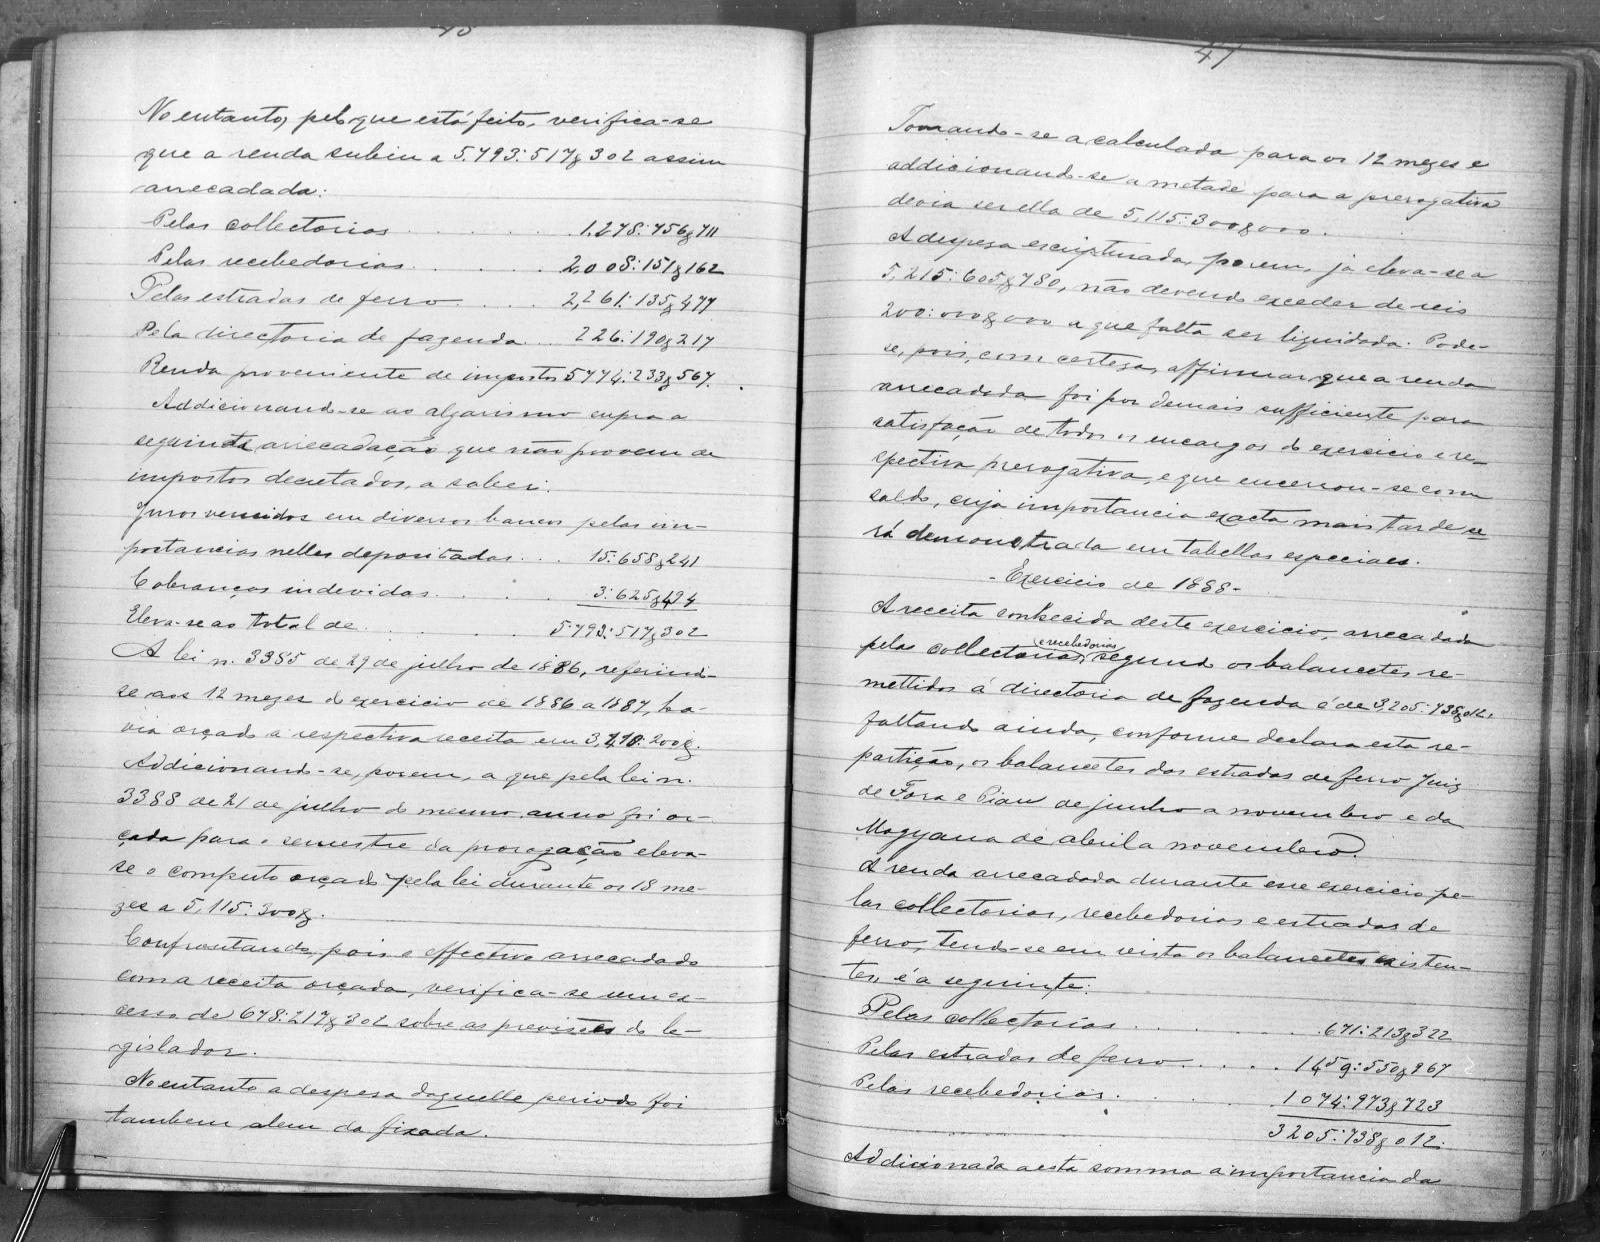 No entanto, pelo que está feito, verifica-se
que a renda subiu a 5.793:517$302 assim
arrecadada:
Pelas collectorias . . . . . 1.278:756$711
Pelas recebedorias . . . . . 2,008:151$162
Pelas estradas de ferro . . . 2,261:135$477
Pela directoria de fazenda . . . 226:190$217
Renda proveniente de impostos 5774:233$567.
Addicionando-se ao algarismo supra a
seguinte arrecadação que não provem de
impostos decretados, a saber:
Juros vencidos em diversos bancos pelas im-
portancias nelles depositadas . . . 15:658$241
Cobranças indevidas . . . . 3:625$494
Eleva-se ao total de . . . . . 5793:517$302
A lei n. 3385 de 29 de julho de 1886, referindo-
se aos 12 mezes do exercicio de 1886 a 1887, ha-
via orçado a respectiva receita em 3,410:200$.
Addicionando-se, porem, a que pela lei n.
3388 de 21 de julho do mesmo anno foi or-
çada para o semestre da prorogação eleva-
se o computo orçado pela lei durante os 18 me-
zes a 5,115:300$.
Confrontando, pois o effectivo arrecadado
com a receita orçada, verifica-se um ex-
cesso de 678:217$302 sobre as previsões do le-
gislador.
No entanto a despesa daquelle periodo foi
tambem alem da fixada.
47
Tomando-se a calculada para os 12 mezes e
addicionando-se a metade para a prerogativa
devia ser ella de 5,115:300$000.
A despesa escripturada, porem, já eleva-se a
5,215:605$780, não devendo exceder de reis
200:000$000 a que falta ser liquidada. Pode-
se, pois, com certeza, affirmar que a renda
arrecadada foi por demais sufficiente para
satisfação de todos os encargos do exercicio e re-
spectiva prerogativa, e que encerrou-se com
saldo, cuja importancia exacta mais tarde se
rá demonstrada em tabellas especiaes.
- Exercicio de 1888 -
A receita conhecida deste exercicio, arrecadada
pelas collectorias e recebedorias, segundo os balancetes re-
mettidos á directoria de fazenda é de 3,205:738$012,
faltando ainda, conforme declara esta re-
partição, os balancetes das estradas de ferro Juiz
de Fora e Piau de junho a novembro e da
Mogyana de abril a novembro.
A renda arrecadada durante esse exercicio pe-
las collectorias, recebedorias e estradas de
ferro, tendo-se em vista os balancetes existen-
tes, é a seguinte:
Pelas collectorias . . . . . . 671:213$322
Pelas estradas de ferro . . . . . 1459:550$967
Pelas recebedorias . . . . . 1074:973$723
3205:738$012.
Addicionada a esta somma a importancia da